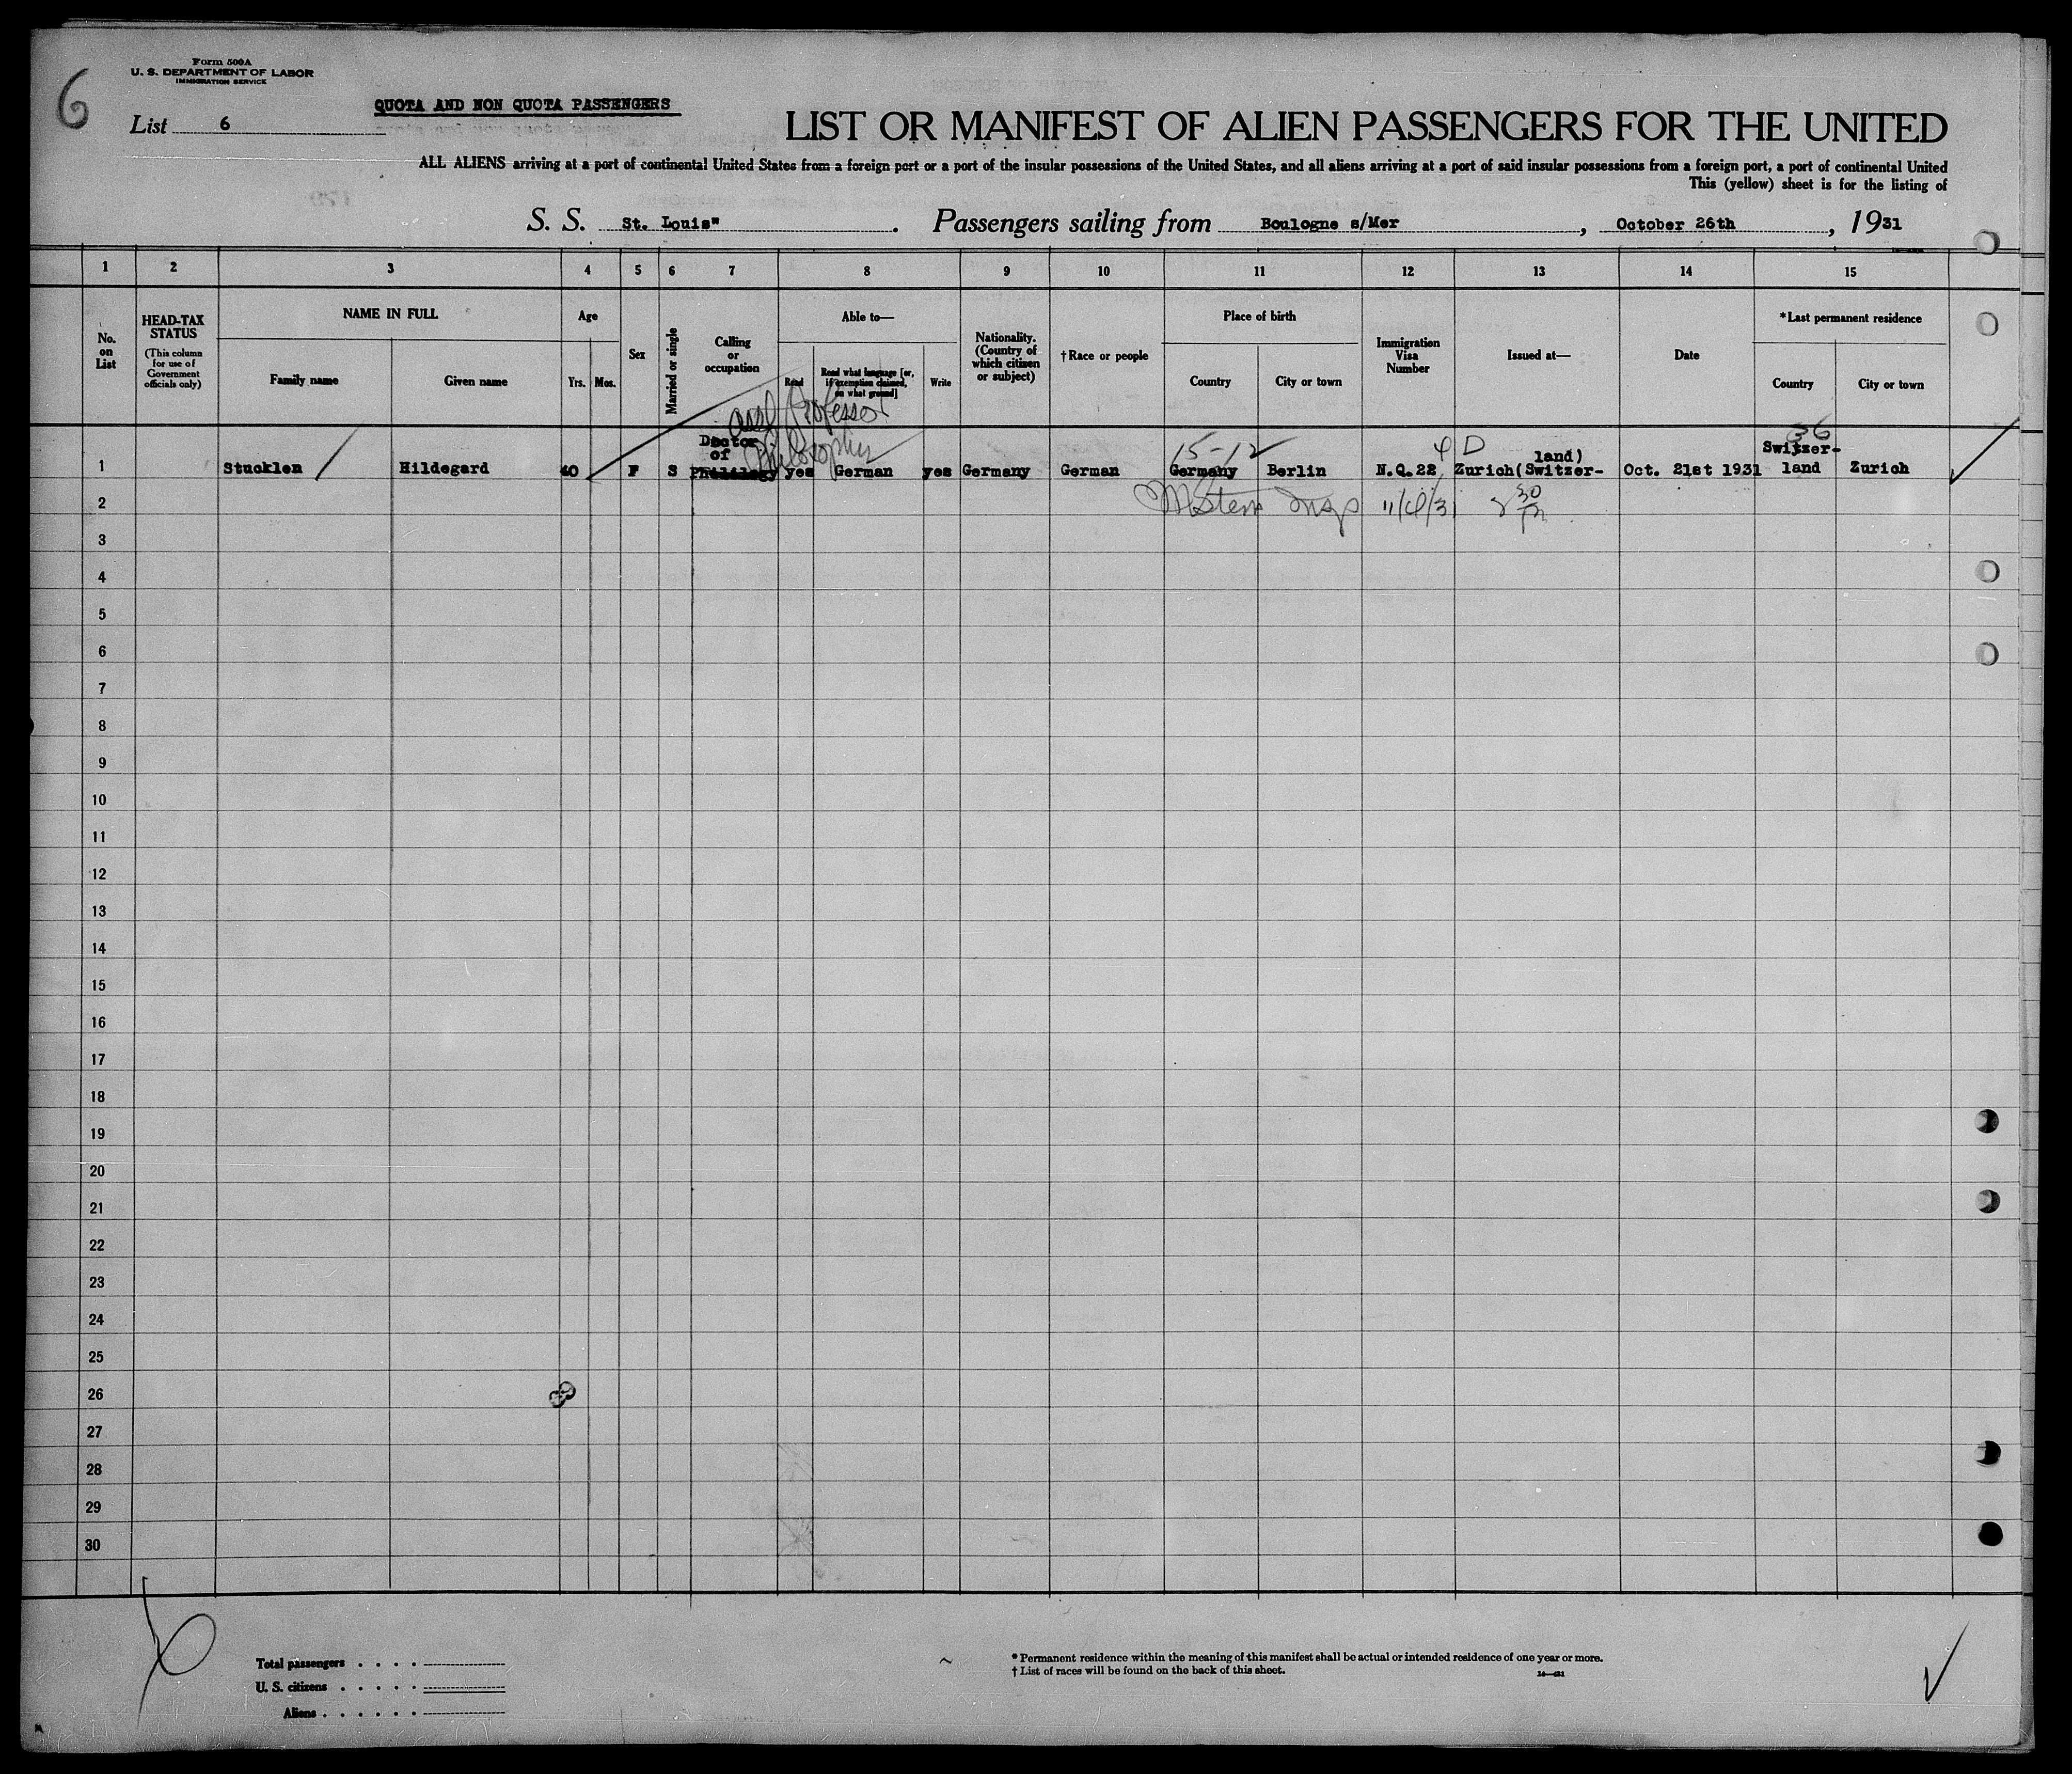 6
Form 500A
U. S. DEPARTMENT OF LABOR
IMMIGRATION SERVICE
QUOTA AND NON QUOTA PASSENGERS
List 6
LIST OR MANIFEST OF ALIEN PASSENGERS FOR THE UNITED
ALL ALIENS arriving at a port of continental United States from a foreign port or a port of the insular possessions of the United States, and all aliens arriving at a port of said insular possessions from a foreign port, a port of continental United
This (yellow) sheet is for the listing of
S. S. St. Louis" . Passengers sailing from Boulogne s/Mer , October 26th , 1931
1 2 3 4 5 6 7 8 9 10 11 12 13 14 15
No. on List
HEAD-TAX STATUS
(This column for use of Government officials only)
NAME IN FULL
Family name Given name
Age
Yrs. Mos.
Sex
Married or single
Calling or occupation
Able to—
Read
Read what language [or, if exemption claimed, on what ground]
Write
Nationality. (Country of which citizen or subject)
†Race or people
Place of birth
Country City or town
Immigration Visa Number
Issued at—
Date
*Last permanent residence
Country City or town
Professor
Philosophy
15-12
4 D
36
1 Stucklen Hildegard 40 F S Doctor of Phililogy yes German yes Germany German Germany Berlin N.Q.22 Zurich(Switzer-land) Oct. 21st 1931 Switzer-land Zurich
2 11/4/31
3
4
5
6
7
8
9
10
11
12
13
14
15
16
17
18
19
20
21
22
23
24
25
26
27
28
29
30
Total passengers . . . .
U. S. citizens . . . . .
Aliens . . . . . .
* Permanent residence within the meaning of this manifest shall be actual or intended residence of one year or more.
† List of races will be found on the back of this sheet.